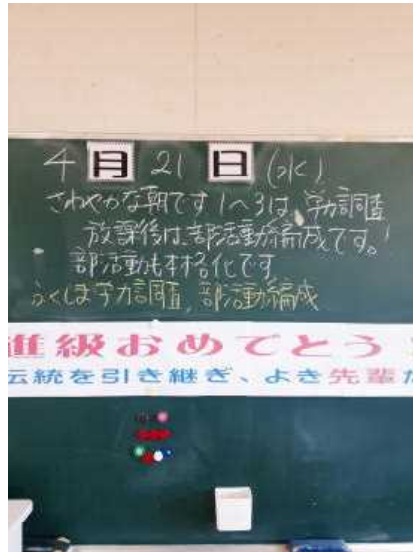 4月21日(水)
さわやかな朝です 1〜3は、学力調査
放課後は、部活動編成です。!
部活動も本格化です
ふくしま学力調査、部活動編成
進級おめでとう
伝統を引き継ぎ、よき先輩